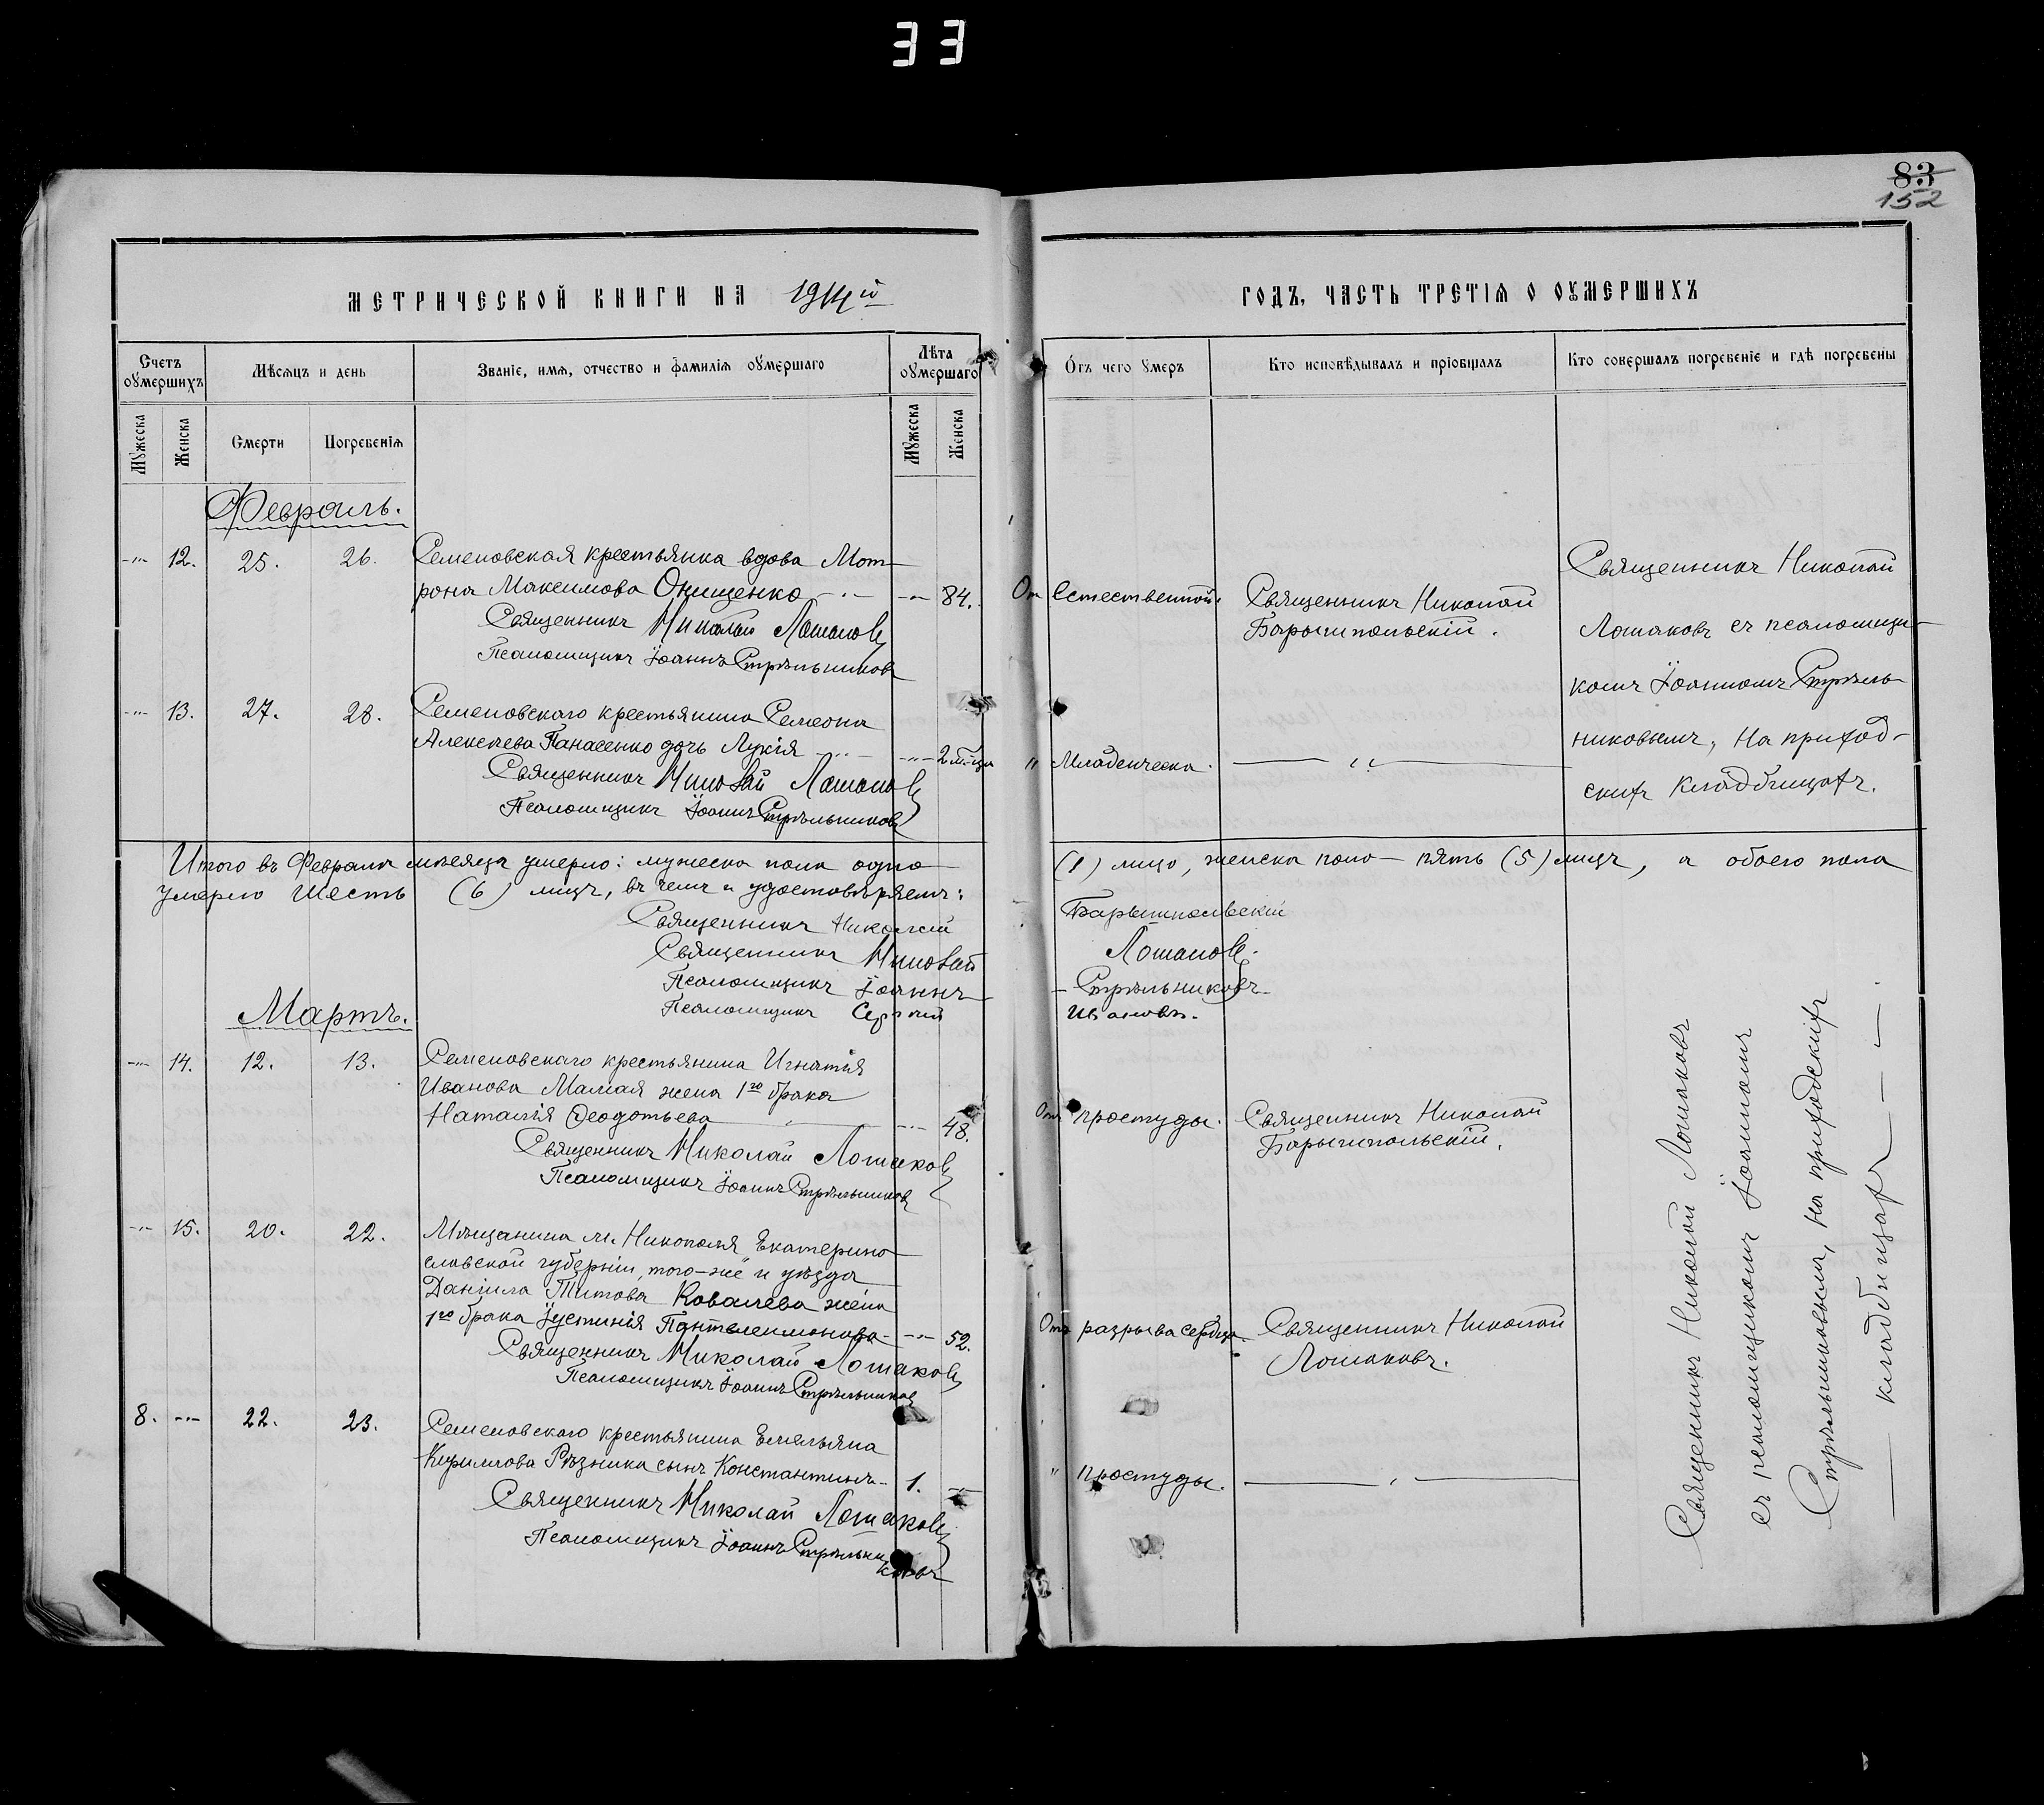 33
83
152
МЕТРИЧЕСКОЙ КНИГИ НА 1914й
ГОДЪ, ЧАСТЬ ТРЕТІЯ О ОУМЕРШИХЪ
Счетъ оумершихъ
Мѣсяцъ и день
Званіе, имя, отчество и фамилія оумершаго
Лѣта оумершаго
Отъ чего умеръ
Кто исповѣдывалъ и пріобщалъ
Кто совершалъ погребеніе и гдѣ погребены
Мужеска
Женска
Смерти
Погребенія
Мужеска
Женска
Февраль.
-"- 12. 25. 26. Семеновская крестьянка вдова Мот-
рона Максимова Онищенко -"- 84.
Священникъ Николай Лошаковъ
Псаломщикъ Іоаннъ Стрѣльниковъ
От Естественной.
Священникъ Николай
Барышпольскій.
Священникъ Николай
Лошаковъ съ псаломщи-
комъ Іоанномъ Стрѣль-
никовымъ, На приход-
скихъ кладбищахъ.
-"- 13. 27. 28. Семеновскаго крестьянина Семеона
Алексѣева Панасенко дочь Лукія -"- 2 м-ца
Священникъ Николай Лошаковъ
Псаломщикъ Іоаннъ Стрѣльниковъ
" Младенческа. — " —
Итого въ Февралѣ мѣсяцѣ умерло: мужеска пола одно (1) лицо, женска пола — пять (5) лицъ, а обоего пола
умерло шесть (6) лицъ, въ чемъ и удостовѣряемъ:
Священникъ Николай Барышпольскій
Священникъ Николай Лошаковъ.
Псаломщикъ Іоаннъ Стрѣльниковъ
Псаломщикъ Сергій Ивановъ.
Мартъ.
-"- 14. 12. 13. Семеновскаго крестьянина Игнатія
Иванова Мамая жена 1го брака
Наталія Феодотьева -"- 48.
Священникъ Николай Лошаковъ
Псаломщикъ Іоаннъ Стрѣльниковъ
Отъ простуды.
Священникъ Николай
Барышпольскій.
-"- 15. 20. 22. Мѣщанина м. Никополя, Екатерино-
славской губерніи, того-же и уѣзда
Даніила Титова Ковалева жена
1го брака Іустинія Пантелеимонова -"- 52.
Священникъ Николай Лошаковъ
Псаломщикъ Іоаннъ Стрѣльниковъ
Отъ разрыва сердца.
Священникъ Николай
Лошаковъ.
8. -"- 22. 23. Семеновскаго крестьянина Емельяна
Кириллова Рѣзника сынъ Константинъ - 1. -"-
Священникъ Николай Лошаковъ
Псаломщикъ Іоаннъ Стрѣльни
ковъ
" простуды. — " —
Священникъ Николай Лошаковъ
съ псаломщикомъ Іоанномъ
Стрѣльниковымъ, на приходскихъ
кладбищахъ